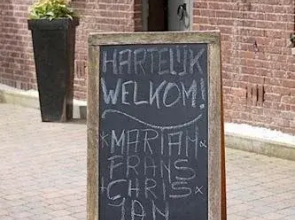 HARTELIJK
WELKOM!
* MARIAH *
FRANS
+ CHRIS *
JAN